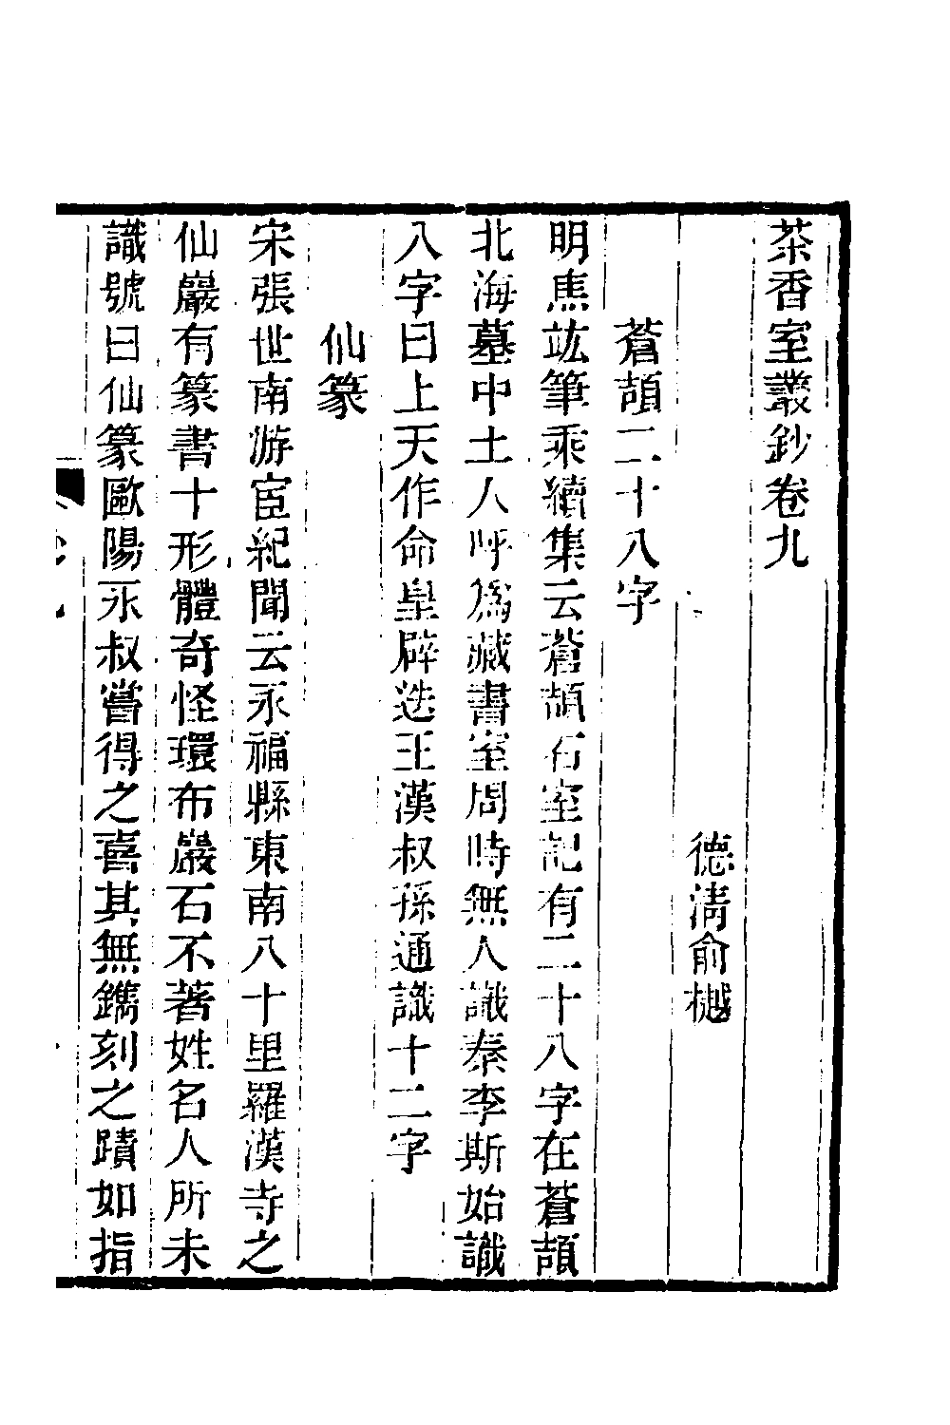 茶香室叢鈔卷九
德清俞樾
蒼頡二十八字
明焦竑筆乘續集云蒼頡石室記有二十八字在蒼頡
北海墓中土人呼爲藏書室周時無人識秦李斯始識
八字曰上天作命皇辟迭王漢叔孫通識十二字
仙篆
宋張世南游宦紀聞云永福縣東南八十里羅漢寺之
仙巖有篆書十形體奇怪環布巖石不著姓名人所未
識號曰仙篆歐陽永叔嘗得之喜其無鐫刻之蹟如指